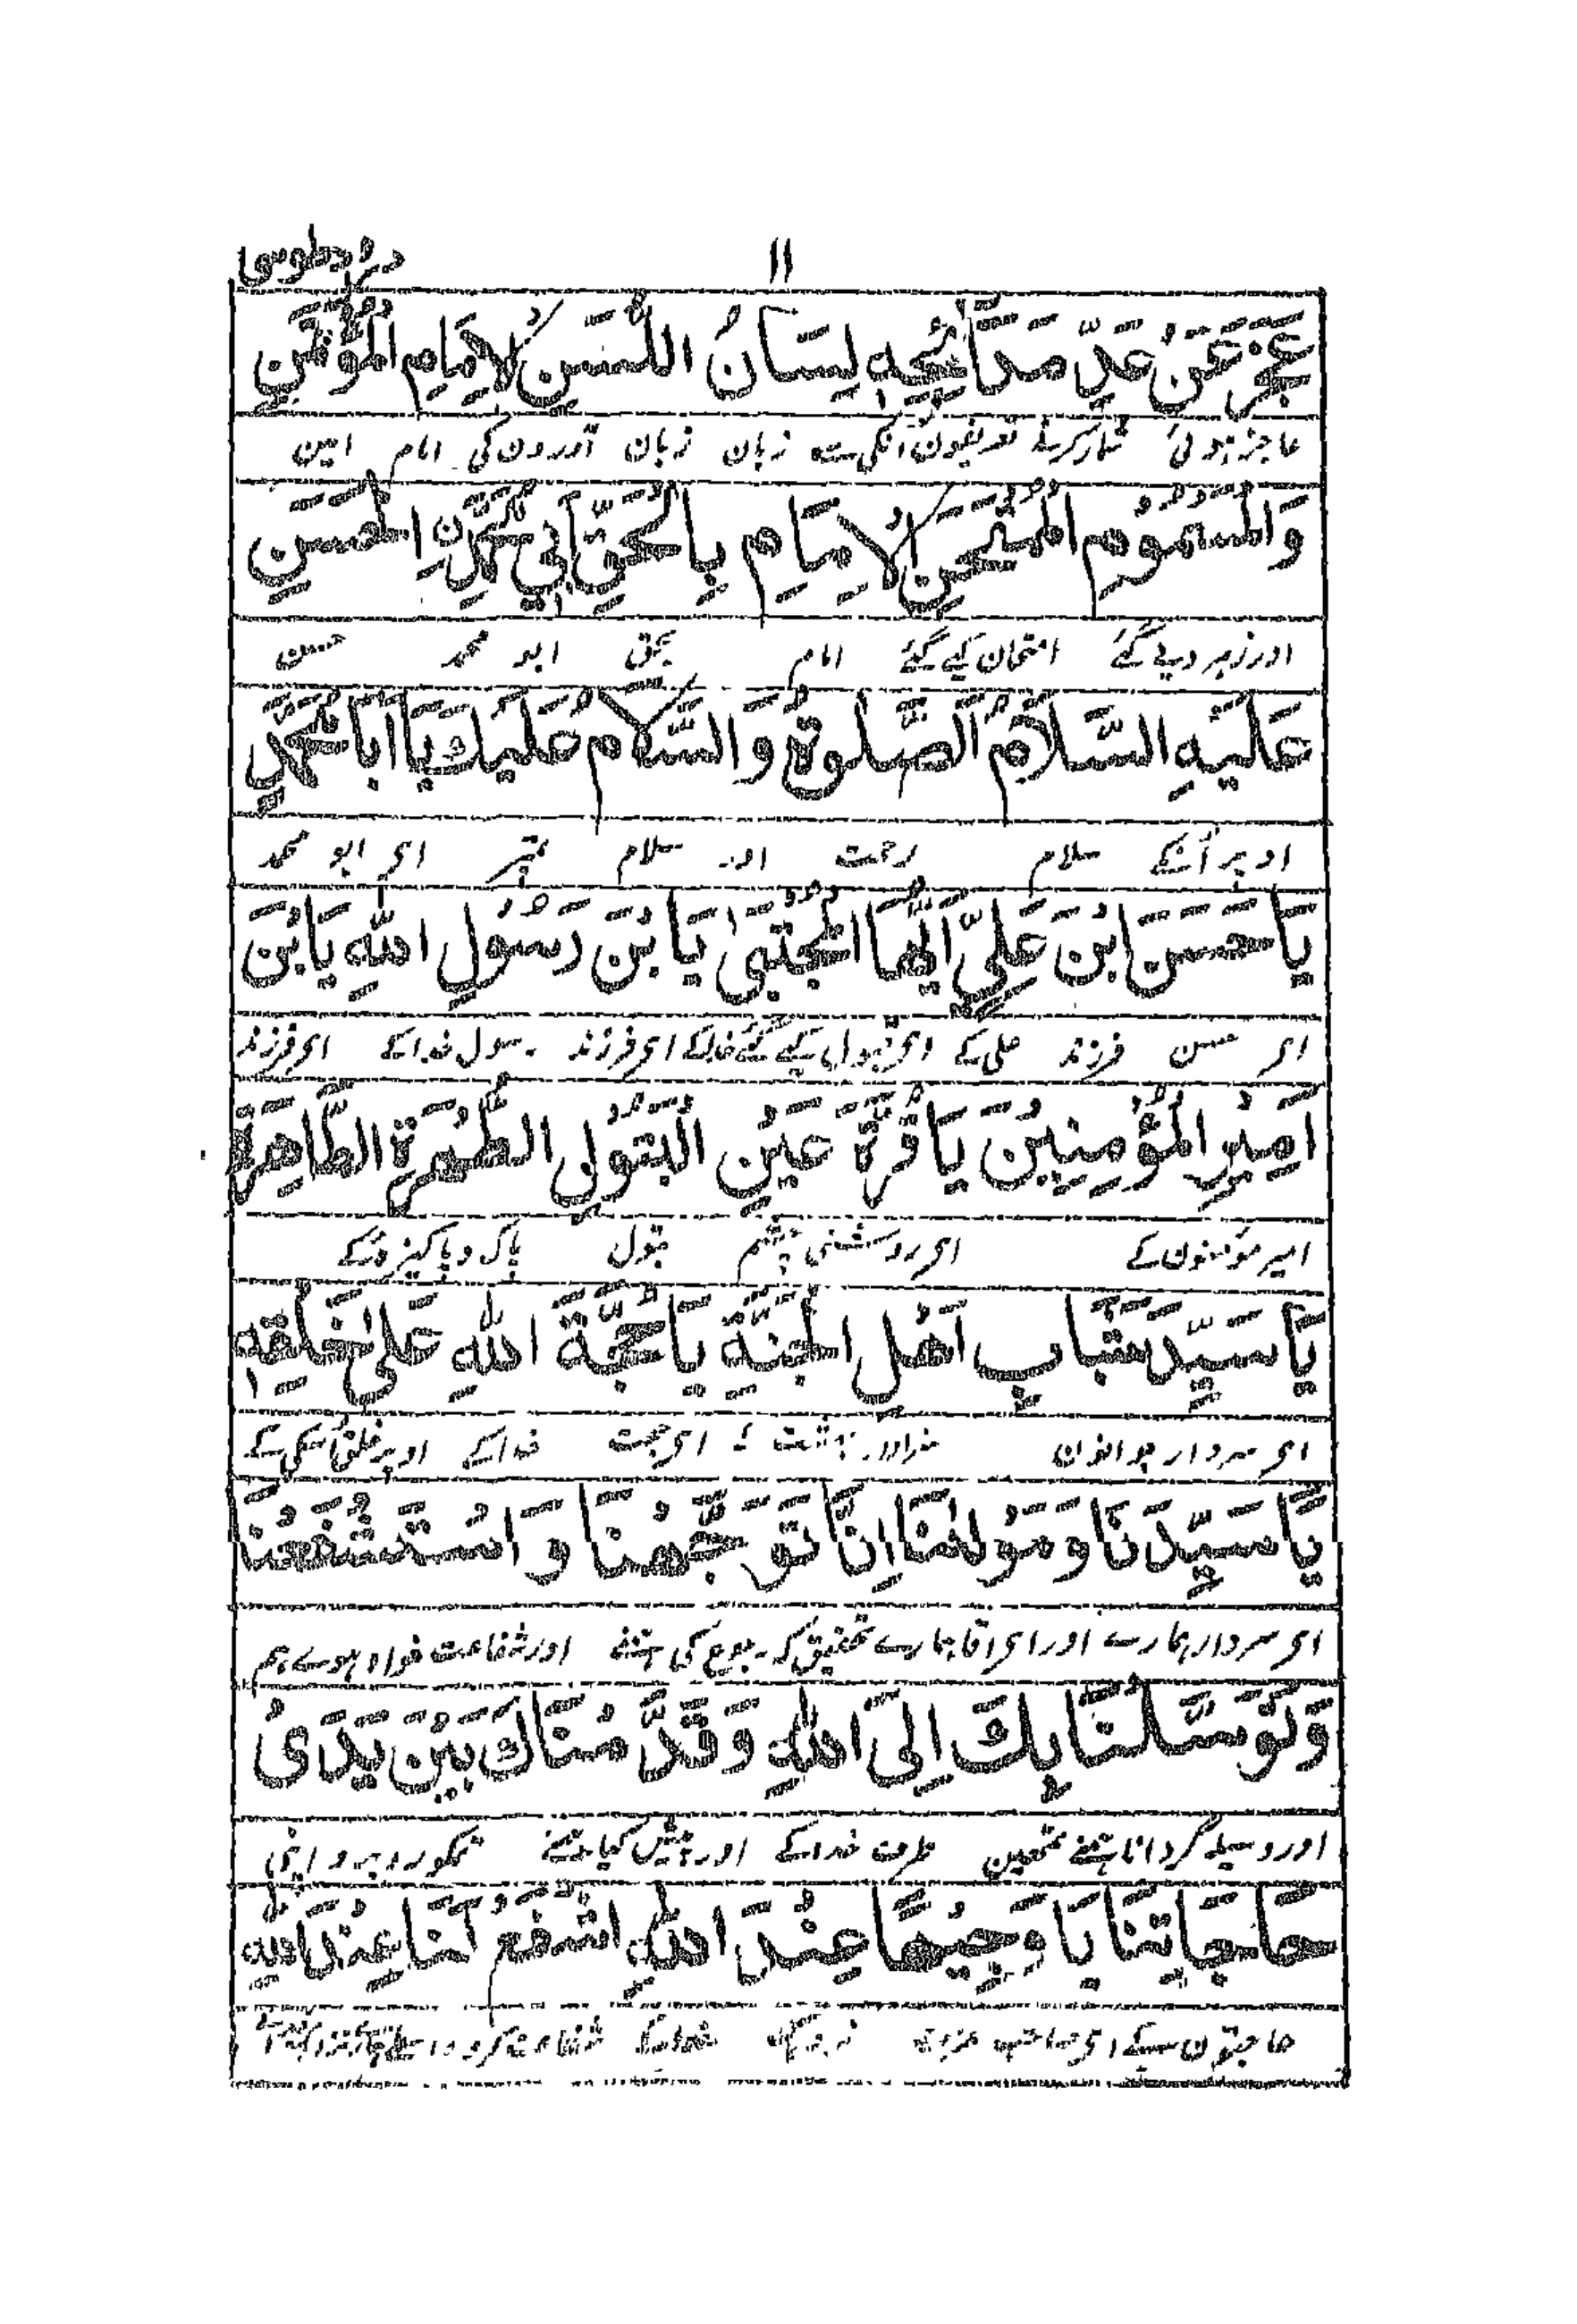 ۱۱
درود طوسی
عَجَزَ عَنْ عَدِّ مَدَآئِحِهٖ لِسَانُ اللَّسِنِ الْاِمَامِ الْمُؤْتَمَنِ
عاجز ہوئی شمار کرنے تعریفون انکی سے زبان زبان آورون کی امام امین
وَالْمَسْمُوْمِ الْمُمْتَحَنِ الْاِمَامِ بِالْحَقِّ اَبِيْ مُحَمَّدِنِ الْحَسَنِ
اور زہر دیے گئے امتحان کیے گئے امام بحق ابو محمد حسن
عَلَيْهِ السَّلَامُ اَلصَّلٰوةُ وَالسَّلَامُ عَلَيْكَ يَا اَبَا مُحَمَّدٍ
اوپر اُنکے سلام رحمت اور سلام تمپر ای ابو محمد
يَا حَسَنَ ابْنَ عَلِيٍّ اَيُّهَا الْمُجْتَبٰى يَا بْنَ رَسُوْلِ اللّٰهِ يَابْنَ
ای حسن فرزند علی کے ای کیے گئے ای فرزند رسول خدا کے ای فرزند
اَمِيْرِ الْمُؤْمِنِيْنَ يَا قُرَّةَ عَيْنِ الْبَتُوْلِ الطُّهْرَةِ الطَّاهِرَةِ
امیر مؤمنون کے ای روشنی چشم بتول پاک و پاکیزہ کے
يَا سَيِّدَ شَبَابِ اَهْلِ الْجَنَّةِ يَا حُجَّةَ اللّٰهِ عَلٰى خَلْقِهٖ
ای سردار جوانون بہشت کے ای حجت خدا کے اوپر خلق اُسکی کے
يَا سَيِّدَنَا وَ مَوْلٰنَا اِنَّا تَوَجَّهْنَا وَ اسْتَشْفَعْنَا
ای سردار ہمارے اور ای آقا ہمارے تحقیق کہ رجوع کی ہمنے اور شفاعت خواہ ہوے ہم
وَتَوَسَّلْنَا بِكَ اِلَى اللّٰهِ وَ قَدَّمْنَاكَ بَيْنَ يَدَىْ
اور وسیلہ گردانا ہمنے تمھین طرف خدا کے اور پیش کیا ہمنے تمکو روبرو اپنی
حَاجَاتِنَا يَا وَجِيْهًا عِنْدَ اللّٰهِ اِشْفَعْ لَنَا عِنْدَ اللّٰهِ
حاجتون کے ای صاحب عزت نزدیک خدا کے شفاعت کرو